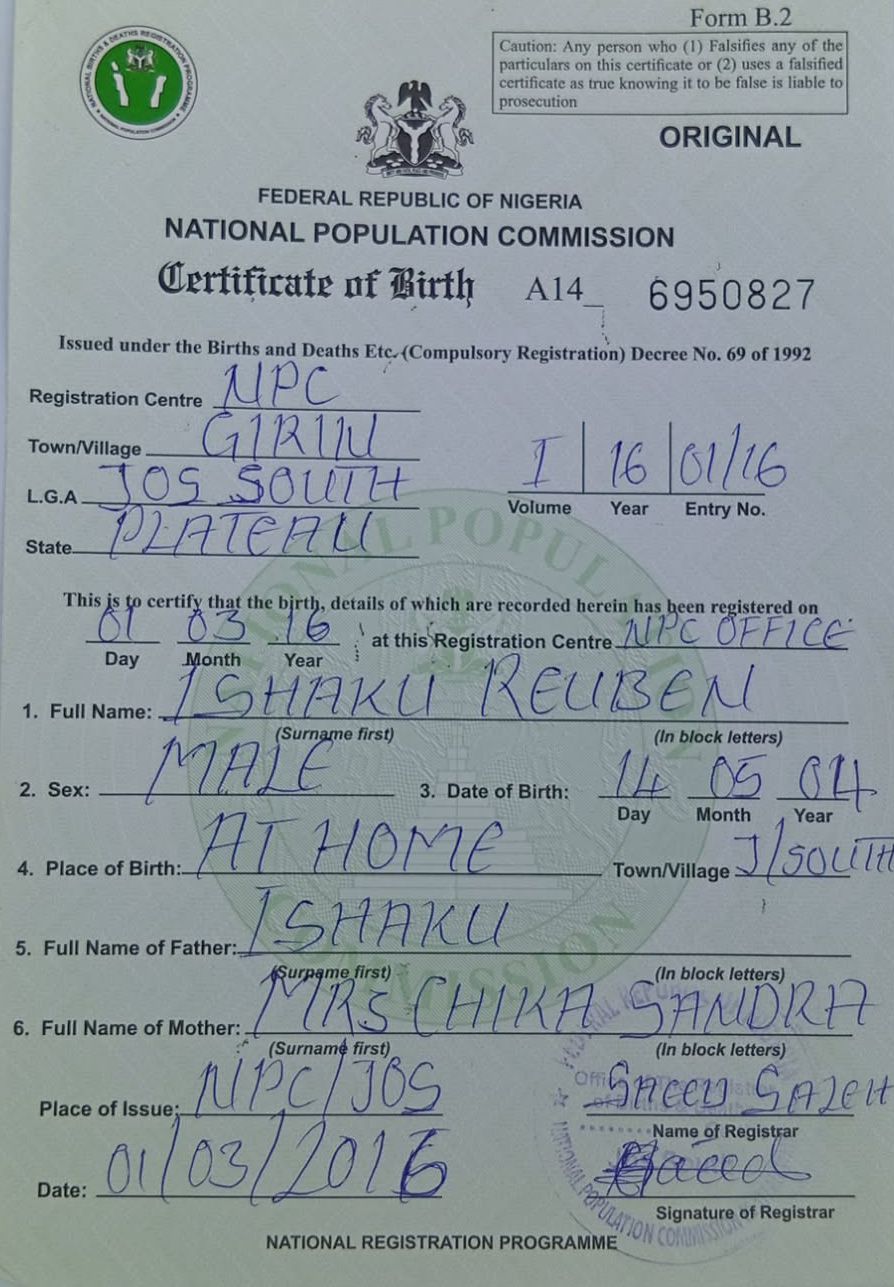 Form B.2
Caution: Any person who (1) Falsifies any of the
particulars on this certificate or (2) uses a falsified
certificate as true knowing it to be false is liable to
prosecution
NATIONAL BIRTHS & DEATHS REGISTRATION PROGRAMME
NATIONAL POPULATION COMMISSION
ORIGINAL
FEDERAL REPUBLIC OF NIGERIA
NATIONAL POPULATION COMMISSION
Certificate of Birth A14_ 6950827
Issued under the Births and Deaths Etc. (Compulsory Registration) Decree No. 69 of 1992
Registration Centre NPC
Town/Village GIRIN
L.G.A JOS SOUTH
State PLATEAU
I 16 01/16
Volume Year Entry No.
NATIONAL POPULATION COMMISSION
This is to certify that the birth, details of which are recorded herein has been registered on
01 03 16 at this Registration Centre NPC OFFICE
Day Month Year
1. Full Name: ISHAKU REUBEN
(Surname first) (In block letters)
2. Sex: MALE 3. Date of Birth: 14 05 04
Day Month Year
4. Place of Birth: AT HOME Town/Village J/SOUTH
5. Full Name of Father: ISHAKU
(Surname first) (In block letters)
6. Full Name of Mother: MRS CHIKA SANDRA
(Surname first) (In block letters)
Place of Issue: NPC/JOS SAEED SALEH
Name of Registrar
Date: 01/03/2016 Saeed
Signature of Registrar
NATIONAL POPULATION COMMISSION
NATIONAL REGISTRATION PROGRAMME